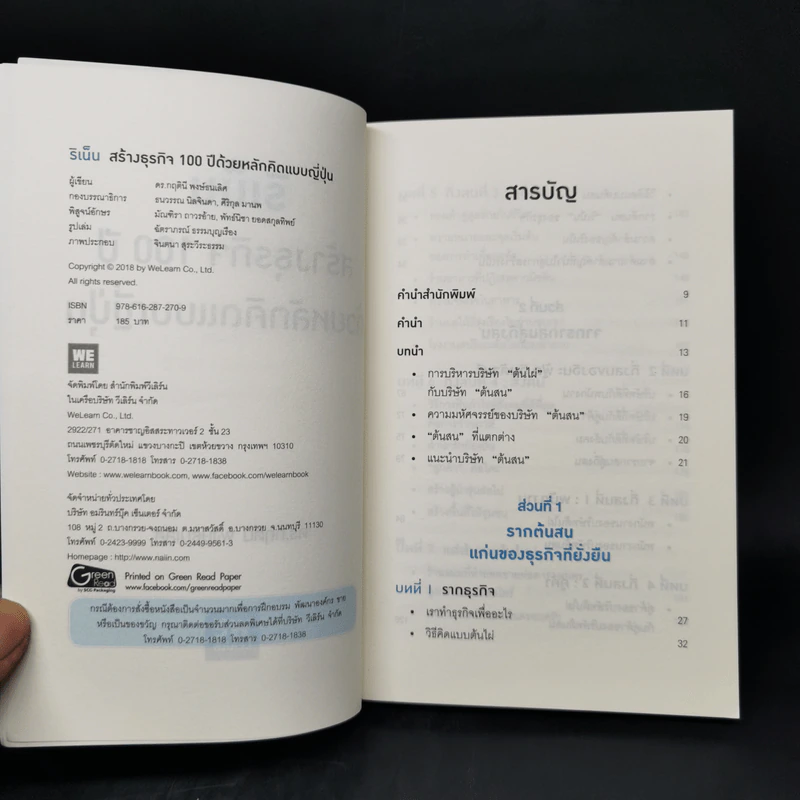 ริเน็น สร้างธุรกิจ 100 ปีด้วยหลักคิดแบบญี่ปุ่น
ผู้เขียน ดร.กฤตินี พงษ์ธนเลิศ
กองบรรณาธิการ ธนวรรณ นิลจินดา, ศิริกุล มานพ
พิสูจน์อักษร มัณฑิรา ถาวรอ้าย, พัทธ์นิชา ยอดสกุลทิพย์
รูปเล่ม ฉัตราภรณ์ ธรรมบุญเรือง
ภาพประกอบ จินตนา สุระวีระธรรม
Copyright © 2018 by WeLearn Co., Ltd.
All rights reserved.
ISBN 978-616-287-270-9
ราคา 185 บาท
WE
LEARN
จัดพิมพ์โดย สำนักพิมพ์วีเลิร์น
ในเครือบริษัท วีเลิร์น จำกัด
WeLearn Co., Ltd.
2922/271 อาคารชาญอิสสระทาวเวอร์ 2 ชั้น 23
ถนนเพชรบุรีตัดใหม่ แขวงบางกะปิ เขตห้วยขวาง กรุงเทพฯ 10310
โทรศัพท์ 0-2718-1818 โทรสาร 0-2718-1838
Website : www.welearnbook.com, www.facebook.com/welearnbook
จัดจำหน่ายทั่วประเทศโดย
บริษัท อมรินทร์บุ๊ค เซ็นเตอร์ จำกัด
108 หมู่ 2 ถ.บางกรวย-จงถนอม ต.มหาสวัสดิ์ อ.บางกรวย จ.นนทบุรี 11130
โทรศัพท์ 0-2423-9999 โทรสาร 0-2449-9561-3
Homepage : http://www.naiin.com
Green Read
by SCG Packaging
Printed on Green Read Paper
www.facebook.com/greenreadpaper
กรณีต้องการสั่งซื้อหนังสือเป็นจำนวนมากเพื่อการฝึกอบรม พัฒนาองค์กร ขาย
หรือเป็นของขวัญ กรุณาติดต่อขอรับส่วนลดพิเศษได้ที่บริษัท วีเลิร์น จำกัด
โทรศัพท์ 0-2718-1818 โทรสาร 0-2718-1838
สารบัญ
คำนำสำนักพิมพ์ 9
คำนำ 11
บทนำ 13
• การบริหารบริษัท “ต้นไผ่”
กับบริษัท “ต้นสน” 16
• ความมหัศจรรย์ของบริษัท “ต้นสน” 19
• “ต้นสน” ที่แตกต่าง 20
• แนะนำบริษัท “ต้นสน” 21
ส่วนที่ 1
รากต้นสน
แก่นของธุรกิจที่ยั่งยืน
บทที่ 1 รากธุรกิจ
• เราทำธุรกิจเพื่ออะไร 27
• วิธีคิดแบบต้นไผ่ 32